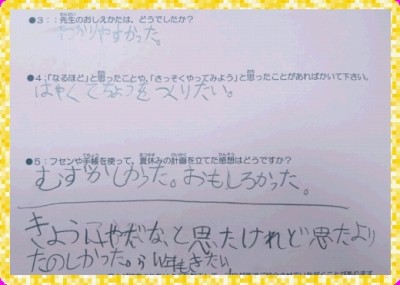 ●3：：先生のおしえかたは、どうでしたか？
わかりやすかった。
●4：「なるほど」と思ったことや、「さっそくやってみよう」と思ったことがあればかいて下さい。
はやくてちょうをつくりたい。
●5：フセンや手帳を使って、夏休みの計画を立てた感想はどうですか？
むずかしかった。おもしろかった。
きょうはやだな、と思たけれど思たより
たのしかった。らい年も きたい